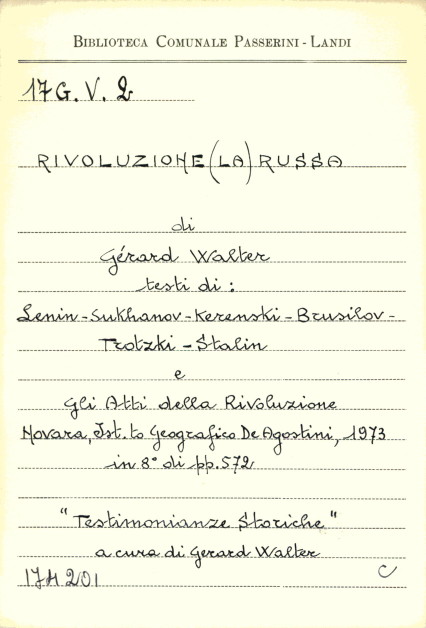 BIBLIOTECA COMUNALE PASSERINI - LANDI
17 G. V. 2
RIVOLUZIONE (LA) RUSSA
di
Gérard Walter
testi di :
Lenin - Sukhanov - Kerenski - Brusilov -
Trotzki - Stalin
e
Gli Atti della Rivoluzione
Novara, Ist.to Geografico De Agostini, 1973
in 8° di pp. 572
"Testimonianze Storiche"
a cura di Gerard Walter
C